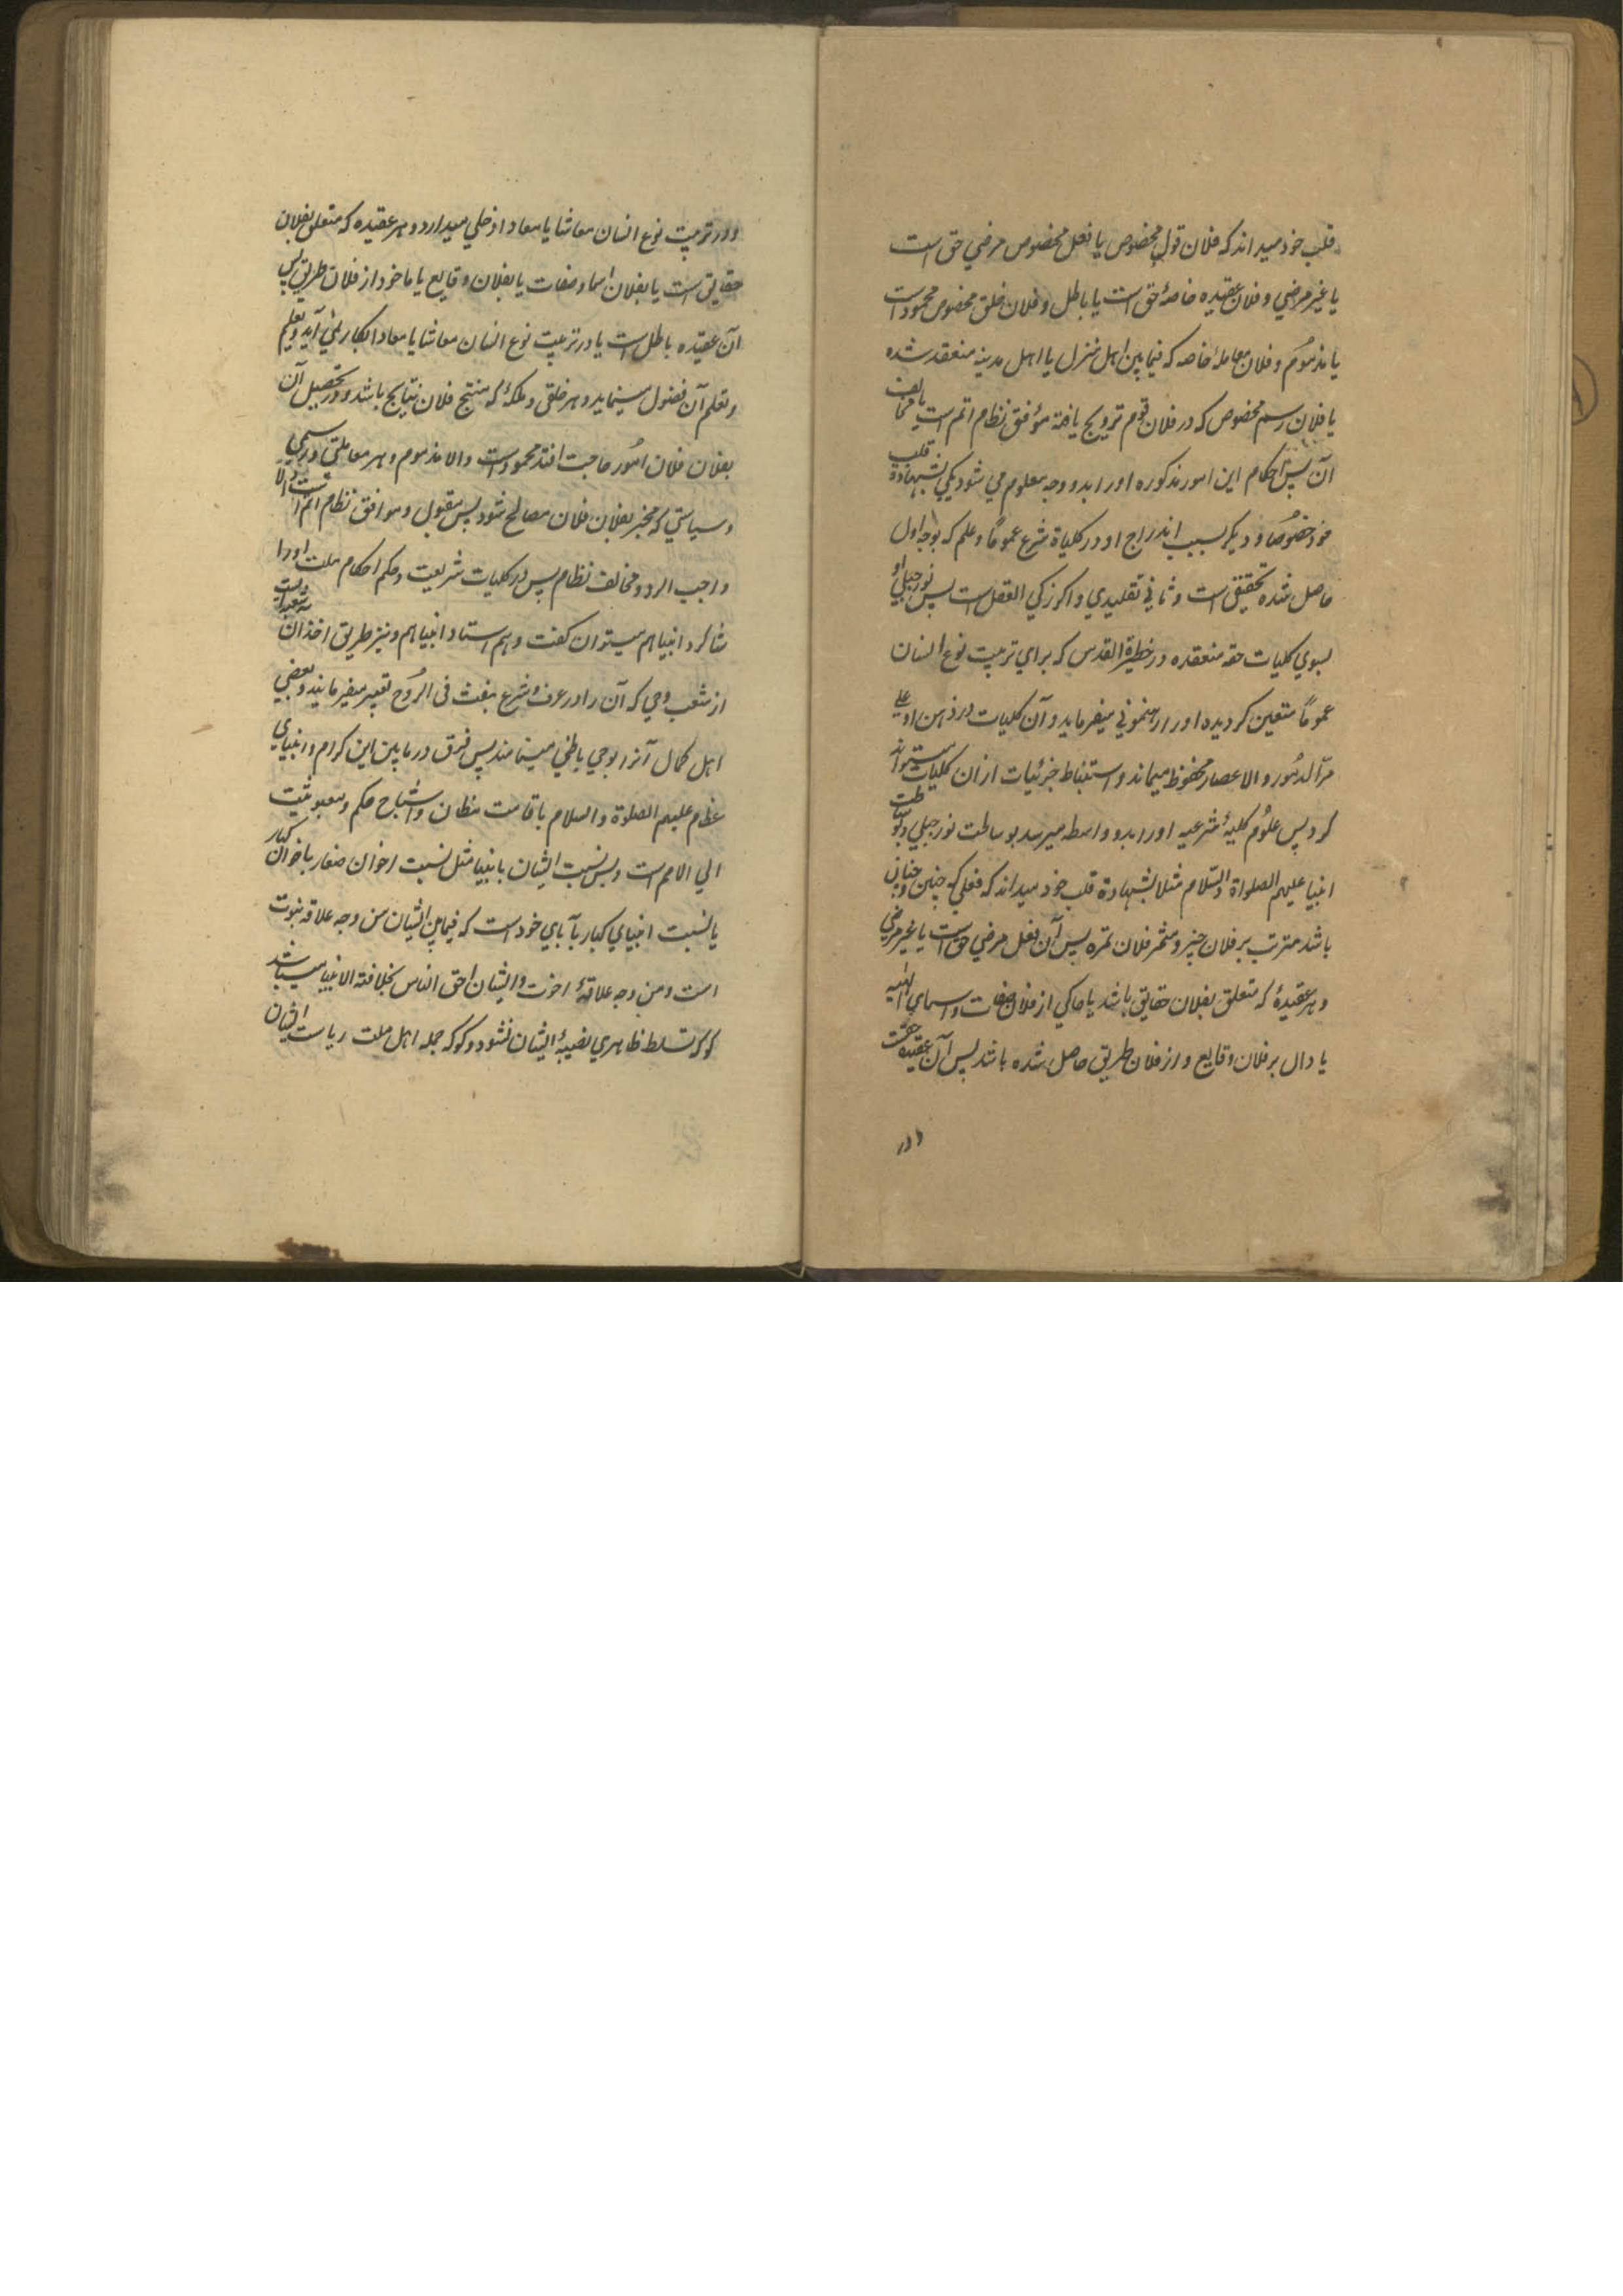 قلب خود میداند که فلان قول مخصوص یا فعل مخصوص مرضی حق است
یا غیر مرضی و فلان عقیده خاصهٔ حق است یا باطل و فلان خلق مخصوص محمود است
یا مذموم و فلان معاملهٔ خاصه که فیمابین اهل منزل یا اهل مدینه منعقد شده
یا فلان رسم مخصوص که در فلان قوم ترویج یافته مؤفق نظام اتم است یا مخالف
آن پس احکام این امور مذکوره او را بدو وجه معلوم می شود یکی بشهادة قلب
خود خصوصًا و دیگر بسبب اندراج او در کلیاة شرع عمومًا و علم که بوجه اول
حاصل شده تحقیقی است و ثانی تقلیدی و اگر زکی العقل است پس نور جبلی او
بسوی کلیات حقه منعقده در خطیرة القدس که برای تربیت نوع انسان
عمومًا متعین کردیده او را رهنمونی میفرماید و آن کلیات در ذهن او علی
مرّ الدهور و الاعصار محفوظ میماند و استنباط جزئیات ازان کلیات میتواند
کرد پس علوم کلیهٔ شرعیه او را بدو واسطه میرسد بوساطت نور جبلی و بوساطت
انبیا علیهم الصلواة والسّلام مثلا بشهادة قلب خود میداند که فعلی که چنین و چنان
باشد مترتب بر فلان چیز و مثمر فلان ثمره پس آن فعل مرضی حق است یا غیر مرضی
و هر عقیدهٔ که متعلق بفلان حقایق باشد یا حاکی از فلان صفات و اسمای الٰهیه
یا دال بر فلان وقایع و از فلان طریق حاصل شده باشد پس آن عقیده حقست
و در
و در تربیت نوع انسان معاشا یا معادا دخلی میدارد و هر عقیده که متعلق بفلان
حقایق است یا بفلان اسما و صفات یا بفلان وقایع یا ماخوذ از فلان طریق پس
آن عقیده باطل است یا در تربیت نوع انسان معاشا یا معادا بکار نمی آید و تعلیم
و تعلم آن فضول مینماید و هر خلقی و ملکهٔ که منتج فلان نتایج باشد و در تحصیل آن
بفلان فلان امور حاجت افتد محمود است والا مذموم و هر معاملتی و رسمی
و سیاستی که منجر بفلان فلان مصالح شود پس مقبول و موافق نظام اتم است والا
واجب الرد و مخالف نظام پس در کلیات شریعت و حکم احکام ملت او را
شاکرد انبیا هم میتوان کفت و هم استاد انبیا هم و نیز طریق اخذ آن شعبه ایست
از شعب وحی که آن را در عرف شرع بنفث فی الرُوح تعبیر میفرمایند و بعضی
اهل کمال آنرا بوحی باطنی مینامند پس فرق در مابین این کرام و انبیای
عظام علیهم الصلوة والسلام باقامت مظان و اشباح حکم و مبعوثیت
الی الامم است و پس نسبت ایشان بانبیا مثل نسبت اخوان صغار باخوان کبار
یا نسبت انبیای کبار بآبای خود است که فیمابین ایشان من وجه علاقه نبوت
است و من وجه علاقهٔ اخوت و ایشان احق الناس بخلافة الانبیا میباشند
کو که تسلط ظاهری نصیبهٔ ایشان نشود و کو که جمله اهل ملت ریاست ایشان